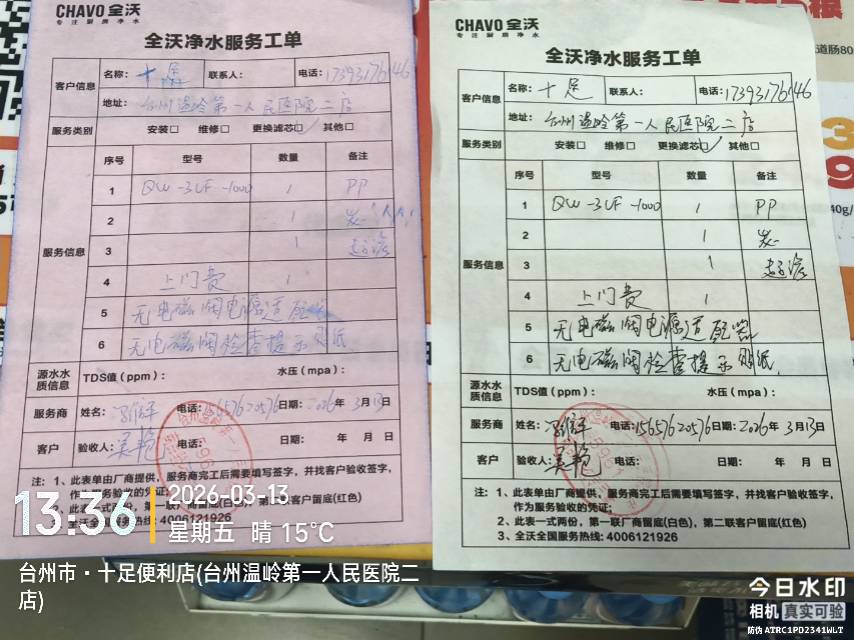 CHAVO 全沃
专注厨房净水
全沃净水服务工单
客户信息 名称: 十足 联系人: 电话: 17393176146
地址: 台州温岭第一人民医院二店
服务类别 安装☐ 维修☐ 更换滤芯☑ 其他☐
服务信息 序号 型号 数量 备注
1 QW-3UF-1000 1 PP
2 1 炭
3 1 超滤
4 上门费 1
5 无电磁阀电源适配器
6 无电磁阀检查提示贴纸
源水水质信息 TDS值(ppm): 水压(mpa):
服务商 姓名: 电话: 15657620576 日期: 2026年 3月13日
客户 验收人: 吴艳 电话: 日期: 年 月 日
注: 1、此表单由厂商提供, 服务商完工后需要填写签字, 并找客户验收签字,
作为服务验收的凭证;
2、此表一式两份, 第一联厂商留底(白色), 第二联客户留底(红色)
3、全沃全国服务热线: 4006121926
CHAVO 全沃
专注厨房净水
全沃净水服务工单
客户信息 名称: 十足 联系人: 电话: 17393176146
地址: 台州温岭第一人民医院二店
服务类别 安装☐ 维修☐ 更换滤芯☑ 其他☐
服务信息 序号 型号 数量 备注
1 QW-3UF-1000 1 PP
2 1 炭
3 1 超滤
4 上门费 1
5 无电磁阀电源适配器
6 无电磁阀检查提示贴纸
源水水质信息 TDS值(ppm): 水压(mpa):
服务商 姓名: 电话: 15657620576 日期: 2026年 3月13日
客户 验收人: 吴艳 电话: 日期: 年 月 日
注: 1、此表单由厂商提供, 服务商完工后需要填写签字, 并找客户验收签字,
作为服务验收的凭证;
2、此表一式两份, 第一联厂商留底(白色), 第二联客户留底(红色)
3、全沃全国服务热线: 4006121926
13:36
2026-03-13
星期五 晴 15°C
台州市·十足便利店(台州温岭第一人民医院二店)
今日水印
相机 真实可验
防伪 ATRC1PD2341WLT